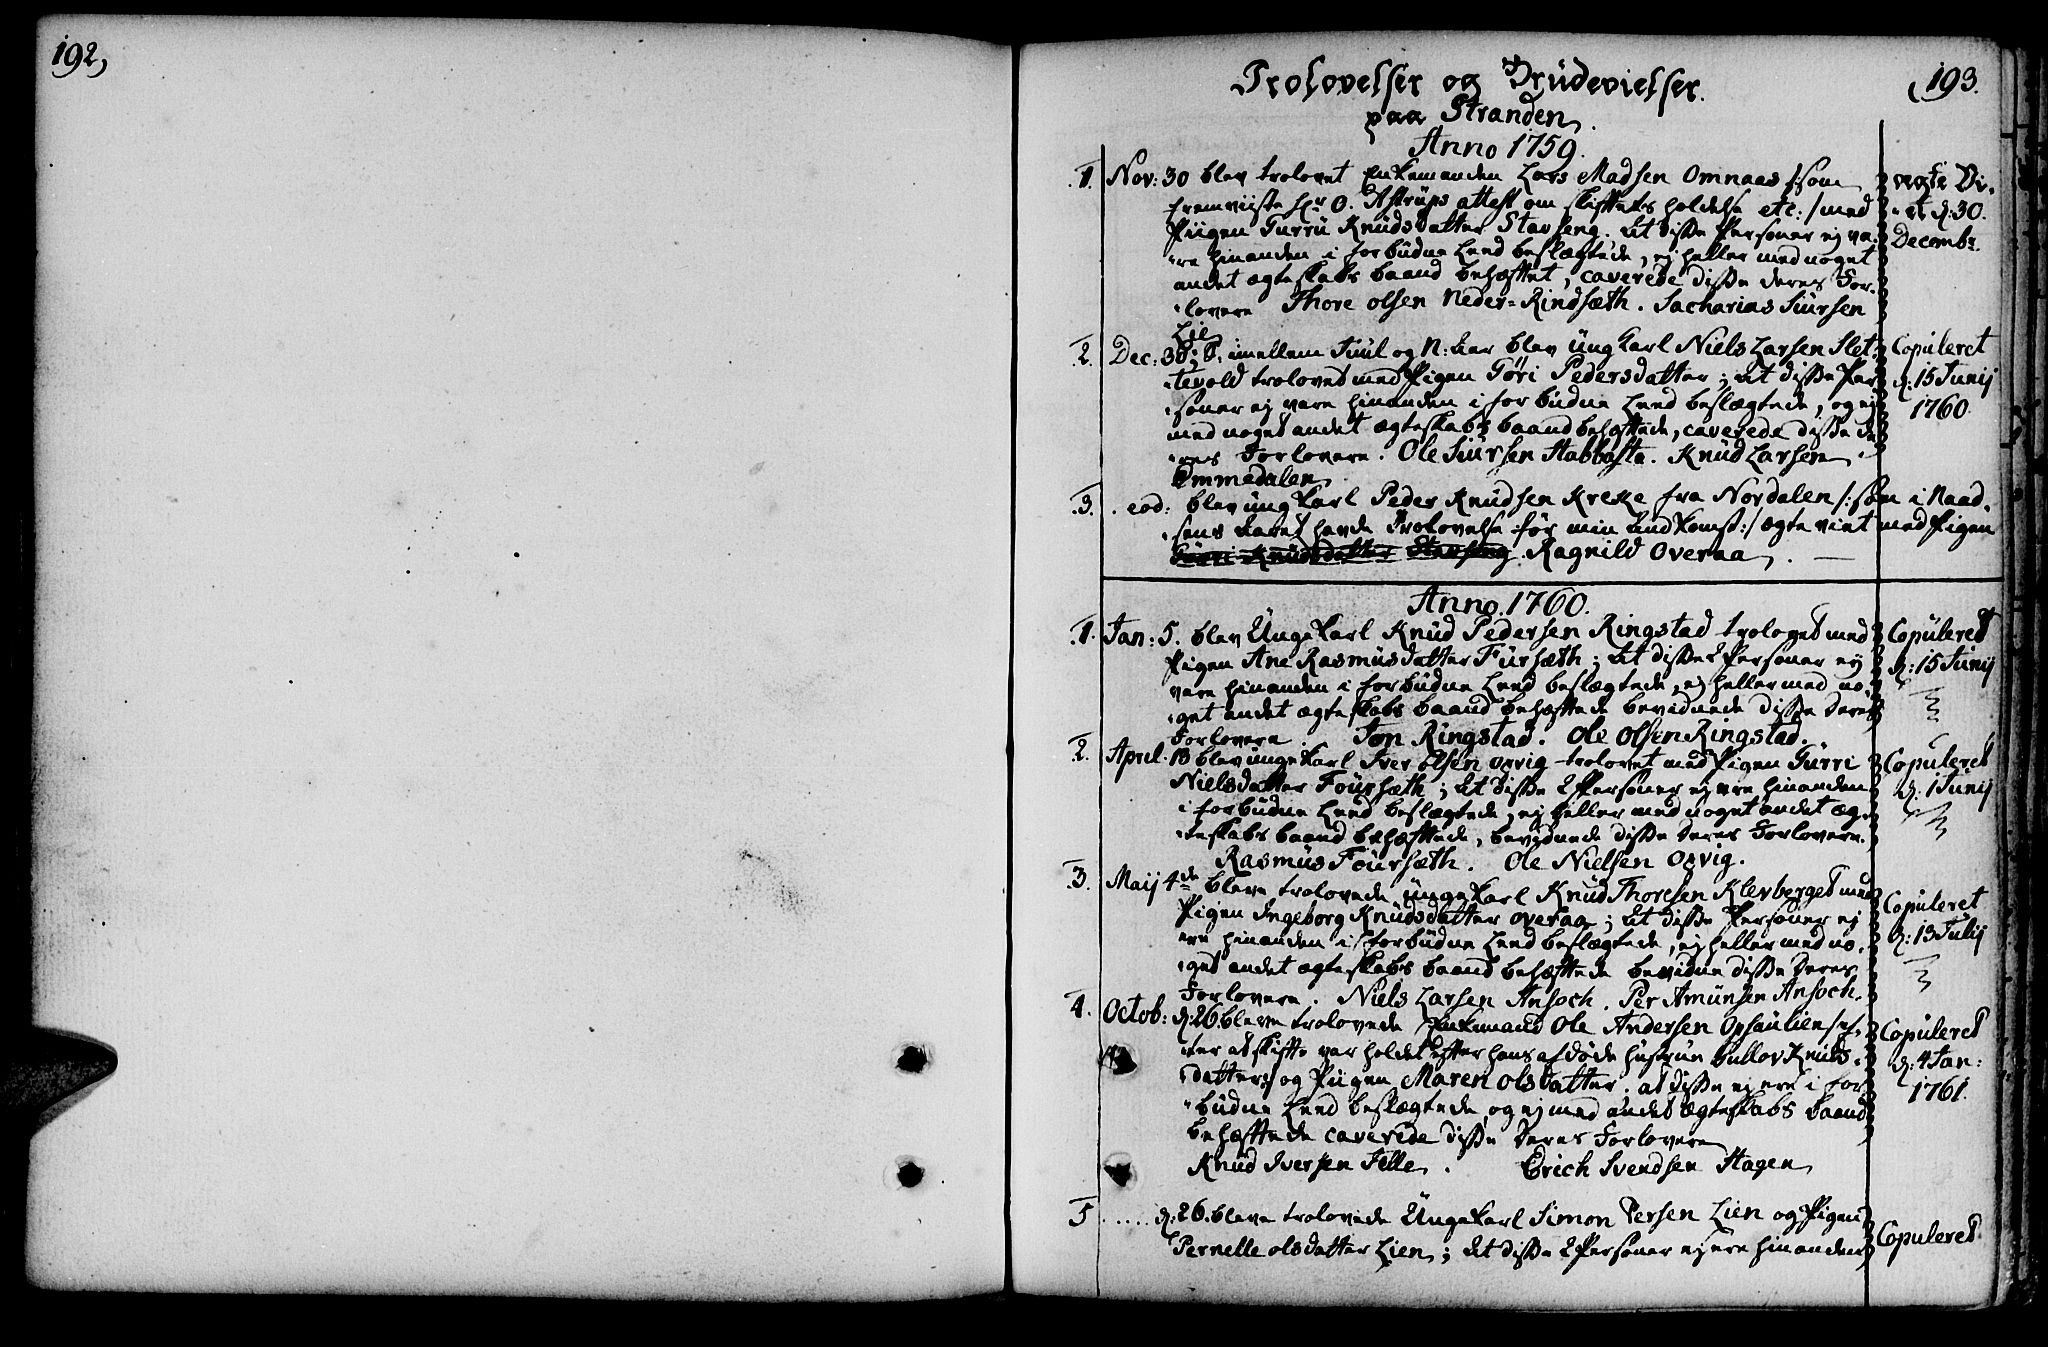 192,
193.
Trolovelser og Brüdevielser.
paa Stranden.
Anno 1759.
.1. Nov: 30 blev trolovet Enkemanden Lars Madsen Omnaas /:som
fremviiste Hr O. Astrüps attest om skifftets holdelse etc:/ med
Piigen Gurru Knüdsdatter Stavseng. At disse Personer ej va-
re hinanden i forbüdne Leed beslægtede, ej heller med noget
andet ægteskabs baand behæfftet, caverede disse deres For-
lovere Thore Olsen Neder-Rindsæth. Sacharias Siursen
Lie
ægte Vi-
et d: 30.
Decembr.
2. Dec: 30, D. imellem Juul og N: Aar blev Ung Karl Niels Larsen Slet-
tevold trolovet med Pigen Göri Pedersdatter; At disse Per-
soner ej vare hinanden i forbüdne Leed beslægtede, og ej
med noget andet ægteskabs baand behæftede, caverede disse de-
res Forlovere. Ole Siursen Stabbøste. Knüd Larsen
Ommedalen.
Copuleret
d: 15 Junij
1760.
.3. . eod: blev ung Karl Peder Knüdsen Kreke fra Nordalen /:som i Maad-
sens Aaret havde Trolovelse før min Ankomst:/ ægteviet med Pigen
Gurri Knüdsdatter Stavseng. Ragnild Overaa.
Anno. 1760.
.1. Jan: 5. blev Unge Karl Knüd Pedersen Ringstad trolovet med
Pigen Ane Rasmüsdatter Fürsæth; At disse 2 Personer ej
vare hinanden i forbüdne Leed beslægtede, ej heller med no-
get andet ægteskabs baand behæftede bevidnede disse deres
Forlovere. Jon Ringstad. Ole Olsen Ringstad.
Copüleret
d: 15 Junij
2. April. 13 blev unge Karl Iver Olsen Opvig trolovet med Pigen Gurri
Nielsdatter Foürsæth; At disse 2 Personer ej ere hinanden
i forbüdne Leed beslægtede, ej heller med noget andet æg-
teskabs baand behæftede, bevidnede disse deres Forlovere.
Rasmüs Foürsæth. Ole Nielsen Opvig.
Copuleret
d: 1 Junij
3. Maij 4de bleve trolovede unge Karl Knüd Thoresen Klevberget med
Pigen Ingeborg Knüdsdatter Overaa; At disse Personer ej
ere hinanden i forbüdne Leed beslægtede, ej heller med no-
get andet ægteskabs baand behæftede bevidne disse deres
Forlovere. Niels Larsen Ansoch. Per Amünsen Ansoch.
Copuleret
d: 13 Julij
4. Octob: d: 26. bleve trolovede Enkemand Ole Andersen Opsaülien /ef-
ter at skifte var holdet efter hans afdøde hüstrue Gullov Knüds-
datter:/ og Piigen Maren Olsdatter. at disse ej ere i for-
büdne Leed beslægtede, og ej med andet ægteskabs baand
behæftede caverede disse deres Forlovere
Knüd Iversen Helle. Erich Svendsen Hagen
Copuleret
d: 4 Jan:
1761.
5 ..... d: 26. bleve trolovede Unge Karl Simon Persen Lien og Pigen
Pernelle Olsdatter Lien; At disse 2 Personer ej ere hinanden
Copuleret.